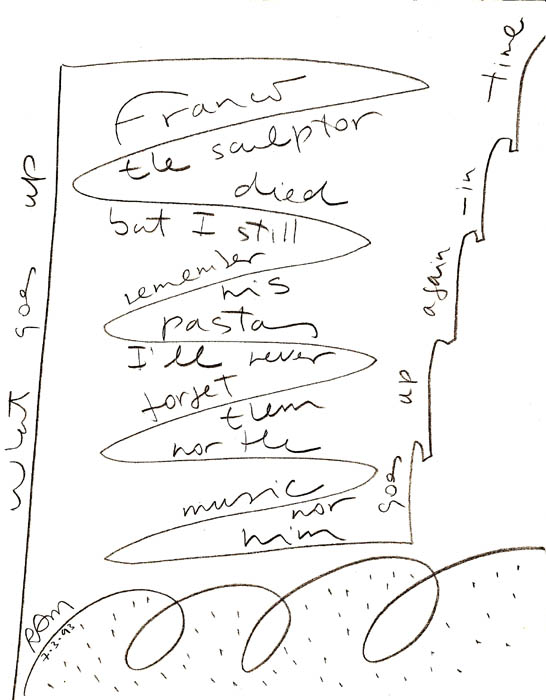 what goes up
Franco
the sculptor
died
but I still
remember
his
pastas
I'll never
forget
them
nor the
music
nor
him
goes
up
again
-in
-time
RAM
7.3.93